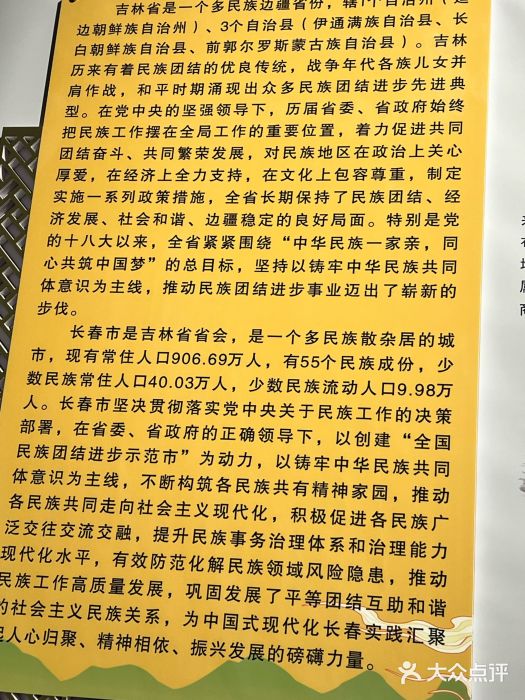 吉林省是一个多民族边疆省份，辖1个自治州（延
边朝鲜族自治州）、3个自治县（伊通满族自治县、长
白朝鲜族自治县、前郭尔罗斯蒙古族自治县）。吉林
历来有着民族团结的优良传统，战争年代各族儿女并
肩作战，和平时期涌现出众多民族团结进步先进典
型。在党中央的坚强领导下，历届省委、省政府始终
把民族工作摆在全局工作的重要位置，着力促进共同
团结奋斗、共同繁荣发展，对民族地区在政治上关心
厚爱，在经济上全力支持，在文化上包容尊重，制定
实施一系列政策措施，全省长期保持了民族团结、经
济发展、社会和谐、边疆稳定的良好局面。特别是党
的十八大以来，全省紧紧围绕“中华民族一家亲，同
心共筑中国梦”的总目标，坚持以铸牢中华民族共同
体意识为主线，推动民族团结进步事业迈出了崭新的
步伐。
长春市是吉林省省会，是一个多民族散杂居的城
市，现有常住人口906.69万人，有55个民族成份，少
数民族常住人口40.03万人，少数民族流动人口9.98万
人。长春市坚决贯彻落实党中央关于民族工作的决策
部署，在省委、省政府的正确领导下，以创建“全国
民族团结进步示范市”为动力，以铸牢中华民族共同
体意识为主线，不断构筑各民族共有精神家园，推动
各民族共同走向社会主义现代化，积极促进各民族广
泛交往交流交融，提升民族事务治理体系和治理能力
现代化水平，有效防范化解民族领域风险隐患，推动
民族工作高质量发展，巩固发展了平等团结互助和谐
的社会主义民族关系，为中国式现代化长春实践汇聚
起人心归聚、精神相依、振兴发展的磅礴力量。
大众点评